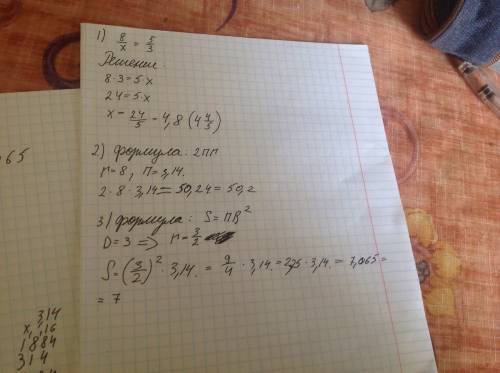 1) 8/x = 5/3
Решение
8·3=5·x
24=5·x
x = 24/5 = 4,8 (4 4/5)
2) формула: 2πr
r=8, π=3,14.
2·8·3,14=50,24=50,2
3) формула: S=πR²
D=3 => r=3/2
S=(3/2)²·3,14.=9/4·3,14.=2,25·3,14.=7,065=
=7
065
314
x,16
1884
314